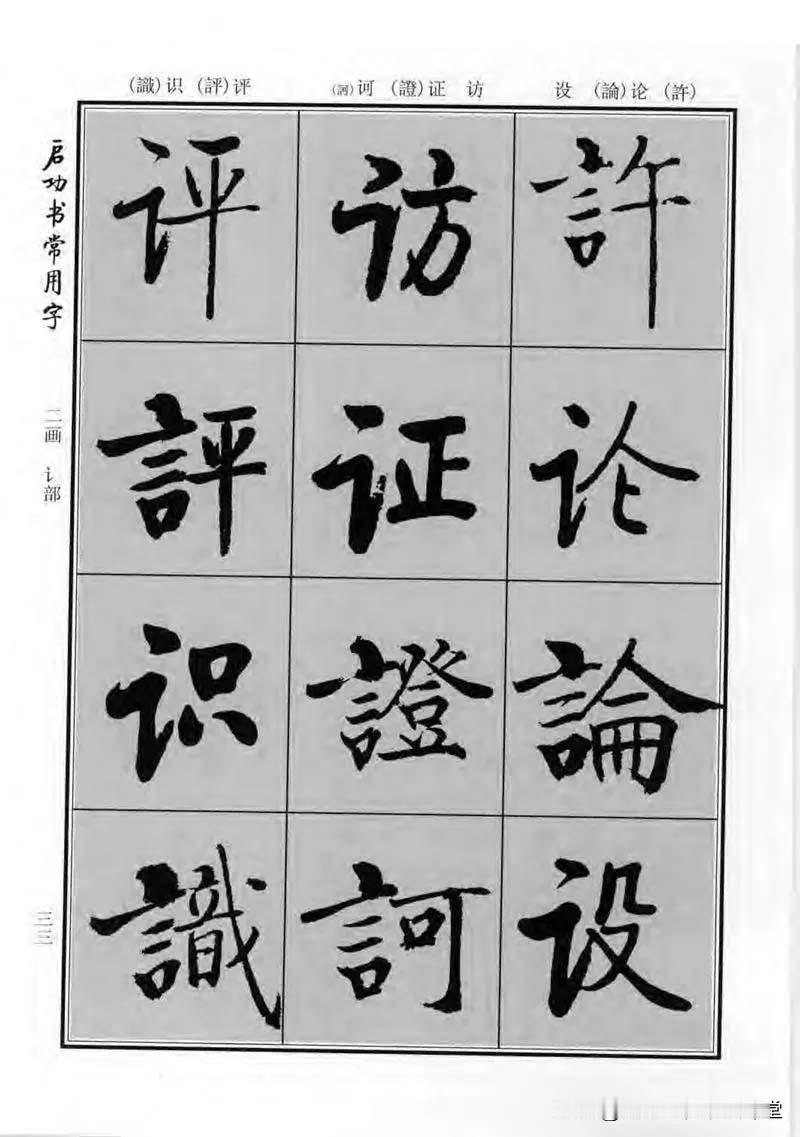 (許) 论(論) 设 访 证(證) 诃(訶) 评(評) 识(識)
許论論设
访证證訶
评評识識
启功书常用字
二画 讠部